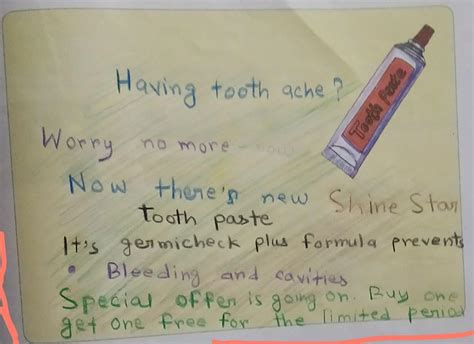 Having tooth ache?
Tooth Paste
Worry no more - now
Now there's new Shine Star
Tooth paste
It's germicheck plus formula prevents
• Bleeding and cavities
Special offer is going on. Buy one
get one free for the limited period